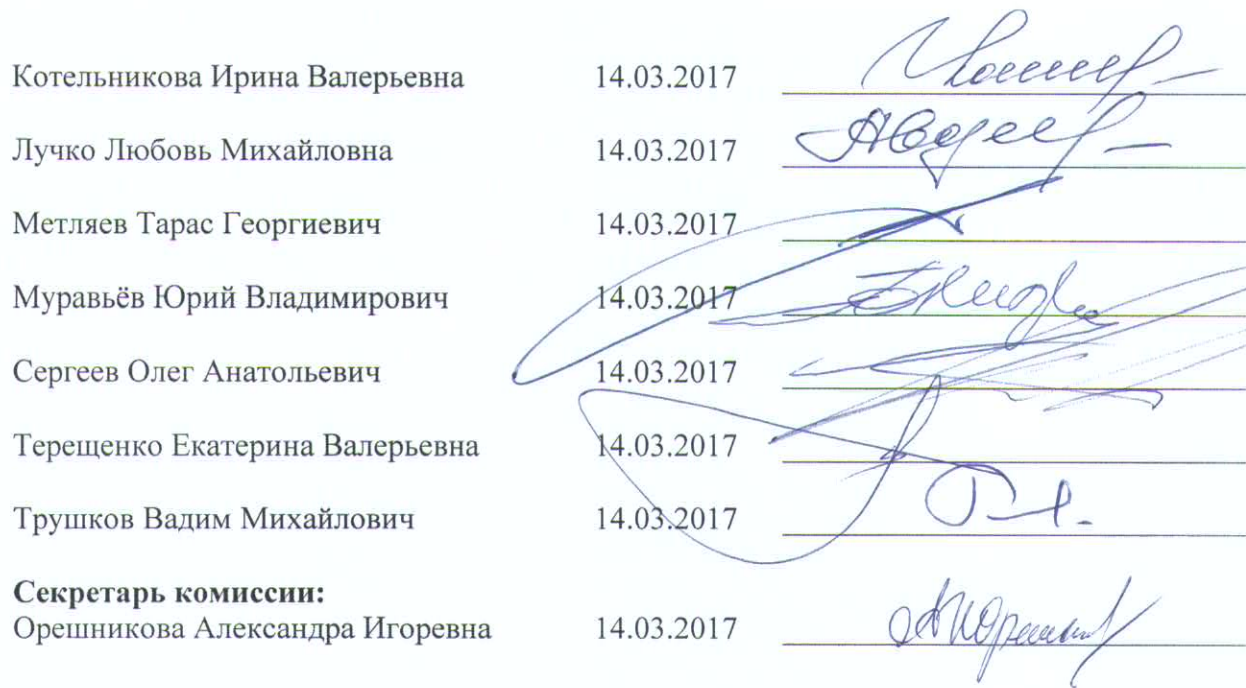 Котельникова Ирина Валерьевна 14.03.2017
Лучко Любовь Михайловна 14.03.2017
Метляев Тарас Георгиевич 14.03.2017
Муравьёв Юрий Владимирович 14.03.2017
Сергеев Олег Анатольевич 14.03.2017
Терещенко Екатерина Валерьевна 14.03.2017
Трушков Вадим Михайлович 14.03.2017
Секретарь комиссии:
Орешникова Александра Игоревна 14.03.2017